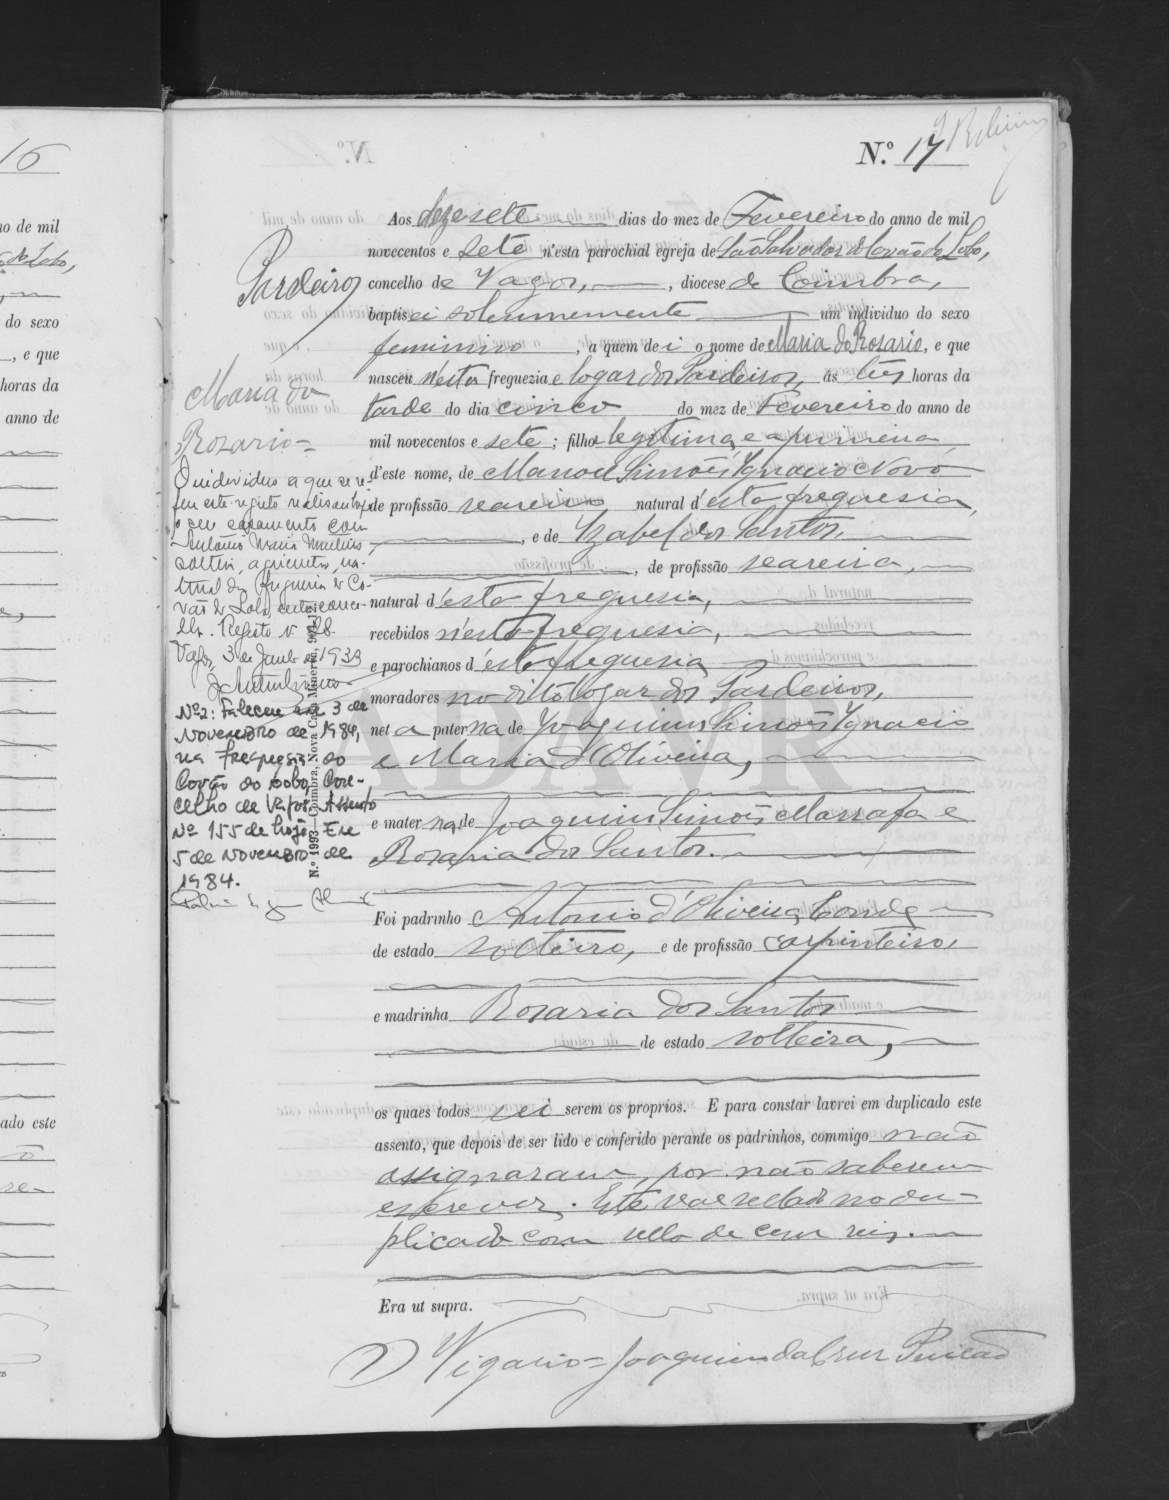 16
o de mil
do sexo
, e que
horas da
anno de
ado este
N.º 17
Pardeiros
Maria do
Rosario=
O individuo a que se re-
fere este registo realisou hoje
o seu casamento com
António Maria Martins
solteiro, agricultor, na-
tural da freguesia de Co-
vão do Lobo, deste conce-
lho. Registo nº 28.
Vagos, 3 de Janº de 1933
Nº 2: Faleceu em 3 de
Novembro de 1984,
na freguesia do
Covão do Lobo, Con-
celho de Vagos. Assento
Nº 155 de hoje. Em
5 de Novembro de
1984.
N.º 1993—Coimbra, Nova Casa Minerva
Aos dezesete dias do mez de Fevereiro do anno de mil
novecentos e sete n'esta parochial egreja de São Salvador do Covão do Lobo,
concelho de Vagos, , diocese de Coimbra,
baptisei solemnemente um individuo do sexo
feminino , a quem dei o nome de Maria do Rosario, e que
nasceu n'esta freguezia e logar dos Pardeiros, ás tres horas da
tarde do dia cinco do mez de Fevereiro do anno de
mil novecentos e sete; filha legitima, e a primeira
d'este nome, de Manoel Simões Ignacio Novo
de profissão seareiro natural d'esta freguesia,
, e de Izabel dos Santos,
, de profissão seareira,
natural d'esta freguesia,
recebidos n'esta freguesia,
e parochianos d'esta freguesia
moradores no dito logar dos Pardeiros,
neta paterna de Joaquim Simões Ignacio
e Maria d'Oliveira,
e materna de Joaquim Simões Marrafa e
Rosaria dos Santos.
Foi padrinho Antonio d'Oliveira Conde
de estado solteiro, e de profissão carpinteiro,
e madrinha Rosaria dos Santos
de estado solteira,
os quaes todos sei serem os proprios. E para constar lavrei em duplicado este
assento, que depois de ser lido e conferido perante os padrinhos, commigo não
assignaram por não saberem
escrever. Este vae sellado no du-
plicado com sello de cem reis.
Era ut supra.
O Vigario= Joaquim da Cruz
ADAVR